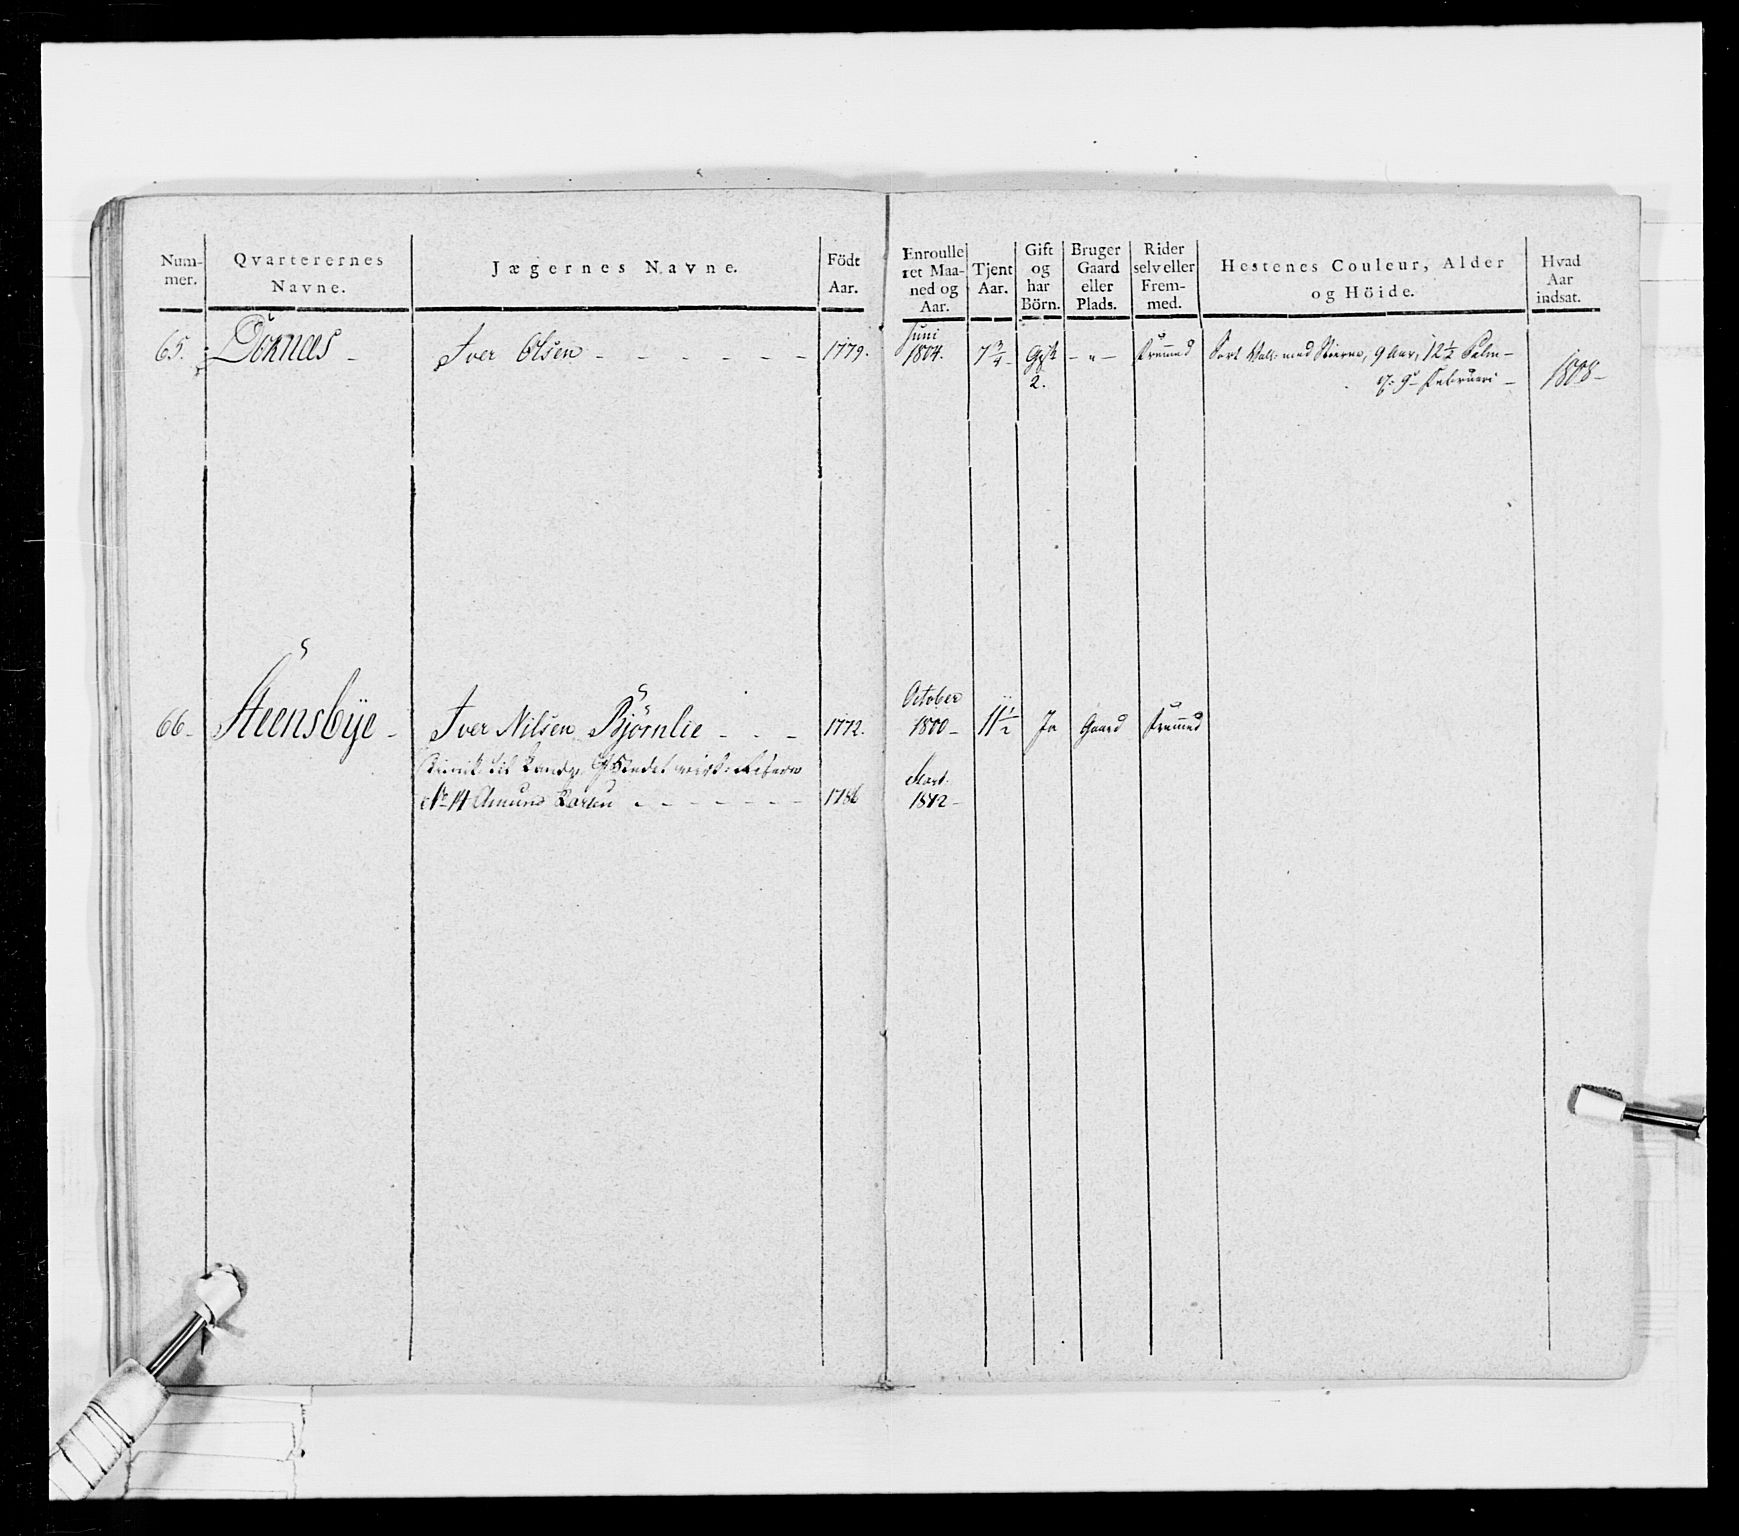 Num-
mer.
Qvarterernes
Navne.
Jægernes Navne.
Födt
Aar.
Enroulle
ret Maa-
ned og
Aar.
Tjent
Aar.
Gift
og
har
Börn.
Bruger
Gaard
eller
Plads.
Rider
selv eller
Frem-
med.
Hestenes Couleur, Alder
og Höide.
Hvad
Aar
indsat.
65. Döknæs - Iver Olsen - - - - - - 1779. Juni 1804. 7 3/4 - Gift 2. - " - Fremmed Sort Vall: med Stierne, 9 Aar, 12 1/2 Palm -
9de Februari - 1808 -
66 - Steensbye - Iver Nilsen Björnlie - - - 1772. October 1800 - 11 1/2 Ja Gaard Fremmed
til
No 14 Amund Larsen - - - - - - - 1786 Mart. 1812 -